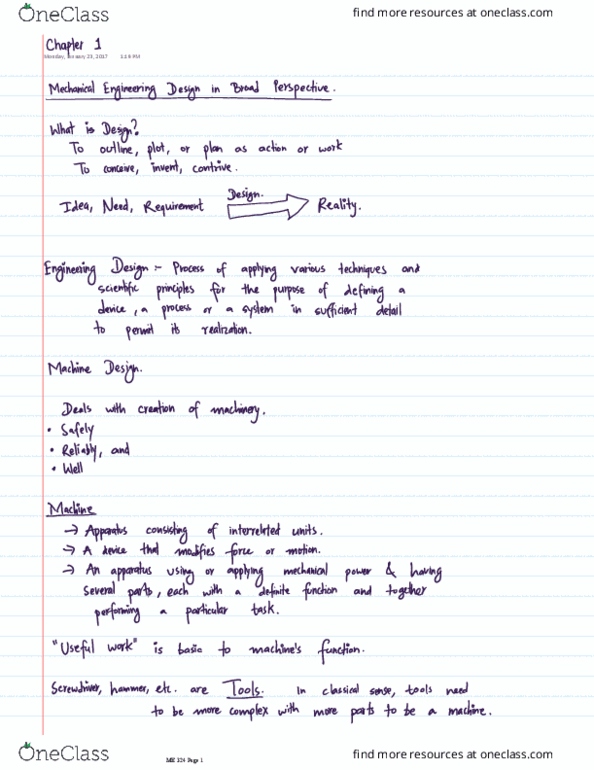 OneClass
find more resources at oneclass.com
Chapter 1
Monday, January 23, 2017 12:9 PM
Mechanical Engineering Design in Broad Perspective.
What is Design?
To outline, plot, or plan as action or work
To conceive, invent, contrive.
Design.
Idea, Need, Requirement Reality.
Engineering Design :- Process of applying various techniques and
scientific principles for the purpose of defining a
device, a process or a system in sufficient detail
to permit its realization.
Machine Design.
Deals with creation of machinery.
• Safely
• Reliably, and
• Well
Machine
→ Apparatus consisting of interrelated units.
→ A device that modifies force or motion.
→ An apparatus using or applying mechanical power & having
several parts, each with a definite function and together
performing a particular task.
"Useful work" is basic to machine's function.
Screwdriver, hammer, etc. are Tools. In classical sense, tools need
to be more complex with more parts to be a machine.
OneClass
ME 324 Page 1
find more resources at oneclass.com